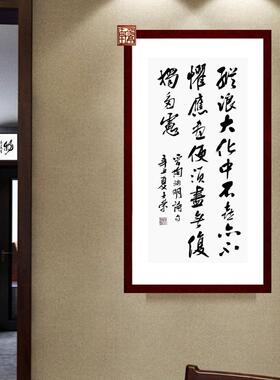 縱浪大化中不喜亦不
懼應盡便須盡無復
獨多慮
陶淵明詩句
辛丑夏